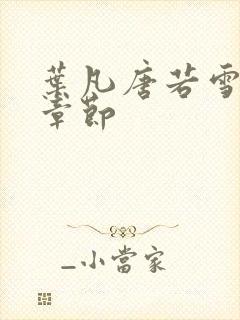 葉凡唐若雪
章節
_小當家